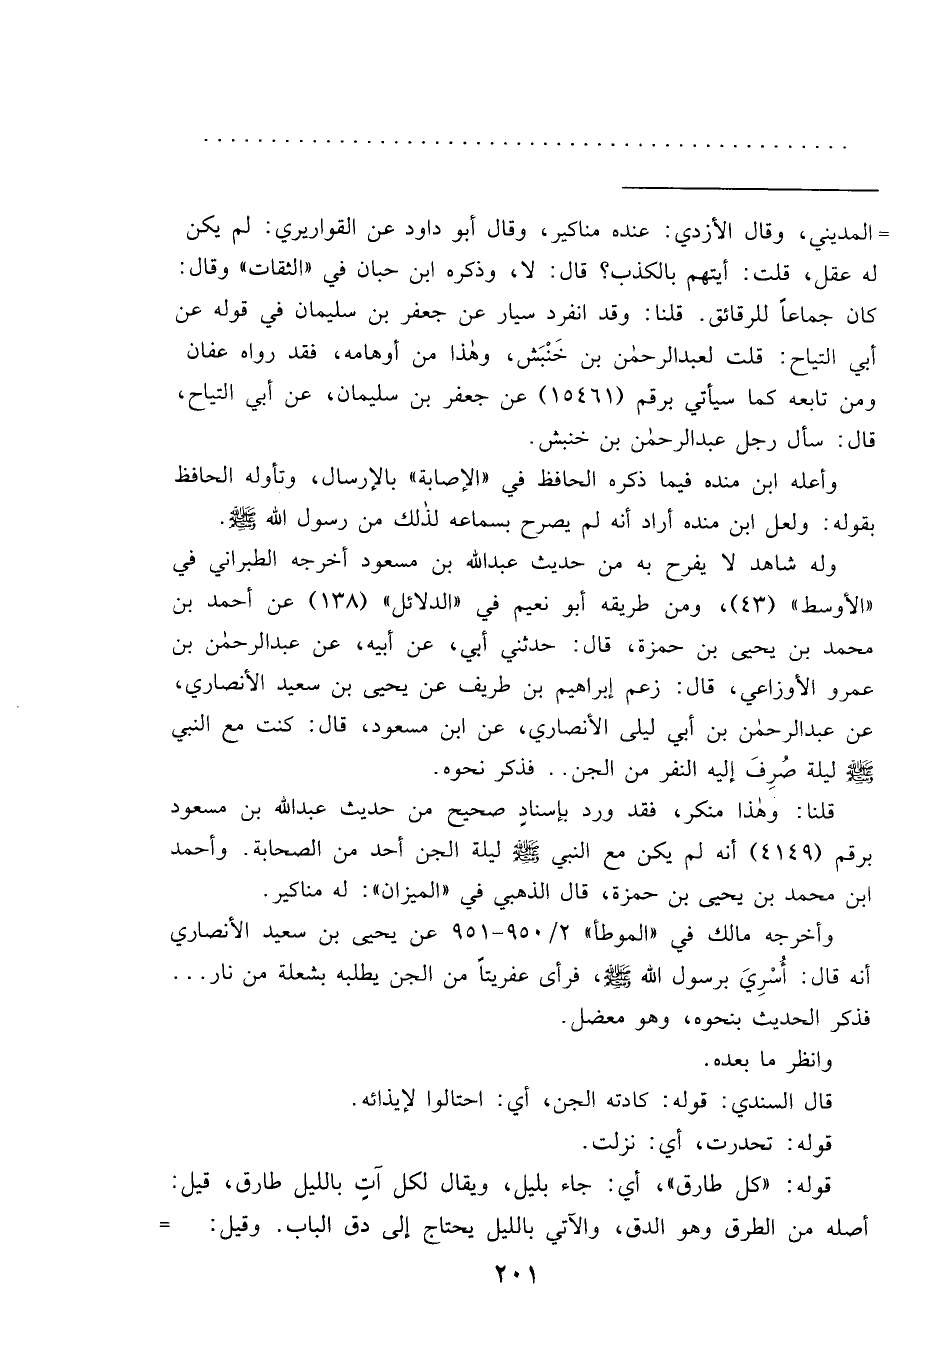 . . . . . . . . . . . . . . . . . . . . . . . . . . . . . . . . . . . . . . . . . . . . . . . .
= المديني، وقال الأزدي: عنده مناكير، وقال أبو داود عن القواريري: لم يكن
له عقل، قلت: أيتهم بالكذب؟ قال: لا، وذكره ابن حبان في «الثقات» وقال:
كان جماعاً للرقائق. قلنا: وقد انفرد سيار عن جعفر بن سليمان في قوله عن
أبي التياح: قلت لعبدالرحمٰن بن خَنْبَش، وهٰذا من أوهامه، فقد رواه عفان
ومن تابعه كما سيأتي برقم (١٥٤٦١) عن جعفر بن سليمان، عن أبي التياح،
قال: سأل رجل عبدالرحمٰن بن خنبش.
وأعله ابن منده فيما ذكره الحافظ في «الإصابة» بالإرسال، وتأوله الحافظ
بقوله: ولعل ابن منده أراد أنه لم يصرح بسماعه لذٰلك من رسول الله ﷺ.
وله شاهد لا يفرح به من حديث عبدالله بن مسعود أخرجه الطبراني في
«الأوسط» (٤٣)، ومن طريقه أبو نعيم في «الدلائل» (١٣٨) عن أحمد بن
محمد بن يحيى بن حمزة، قال: حدثني أبي، عن أبيه، عن عبدالرحمٰن بن
عمرو الأوزاعي، قال: زعم إبراهيم بن طريف عن يحيى بن سعيد الأنصاري،
عن عبدالرحمٰن بن أبي ليلى الأنصاري، عن ابن مسعود، قال: كنت مع النبي
ﷺ ليلة صُرِفَ إليه النفر من الجن.. فذكر نحوه.
قلنا: وهٰذا منكر، فقد ورد بإسنادٍ صحيح من حديث عبدالله بن مسعود
برقم (٤١٤٩) أنه لم يكن مع النبي ﷺ ليلة الجن أحد من الصحابة. وأحمد
ابن محمد بن يحيى بن حمزة، قال الذهبي في «الميزان»: له مناكير.
وأخرجه مالك في «الموطأ» ٢/ ٩٥٠-٩٥١ عن يحيى بن سعيد الأنصاري
أنه قال: أُسْرِيَ برسول الله ﷺ، فرأى عفريتاً من الجن يطلبه بشعلة من نار...
فذكر الحديث بنحوه، وهو معضل.
وانظر ما بعده.
قال السندي: قوله: كادته الجن، أي: احتالوا لإيذائه.
قوله: تحدرت، أي: نزلت.
قوله: «كل طارق»، أي: جاء بليل، ويقال لكل آتٍ بالليل طارق، قيل:
أصله من الطرق وهو الدق، والآتي بالليل يحتاج إلى دق الباب. وقيل: =
٢٠١